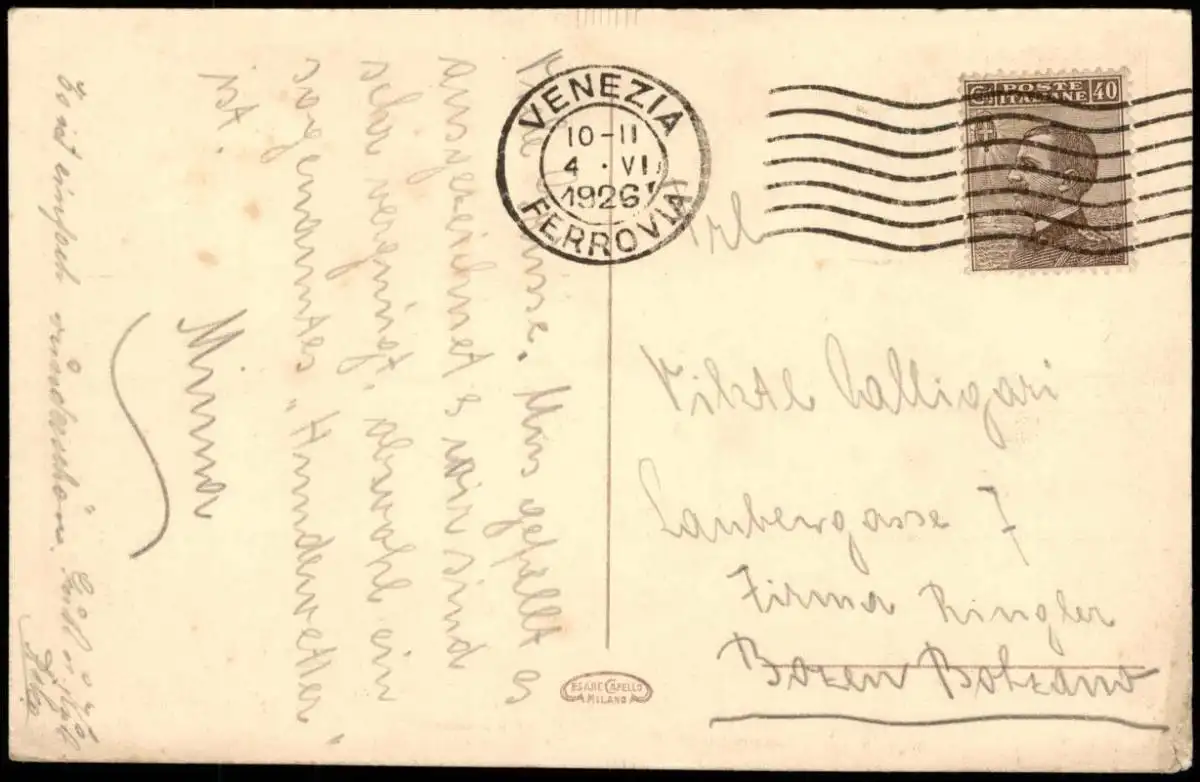 Viele Küsse. Mir gefällt es
ausgezeichnet & wir sind
sehr vereinigt, obwohl ein
sogenanntes „Hundewetter"
ist.
Minna
Es ist einfach wunderschön.
VENEZIA
10-11
4 · VI
1926
FERROVIA
POSTE ITALIANE 40
Frl
Calligari
Laubengasse 7
Firma Ringler
Bozen Bolzano
CESARE CAPELLO
MILANO